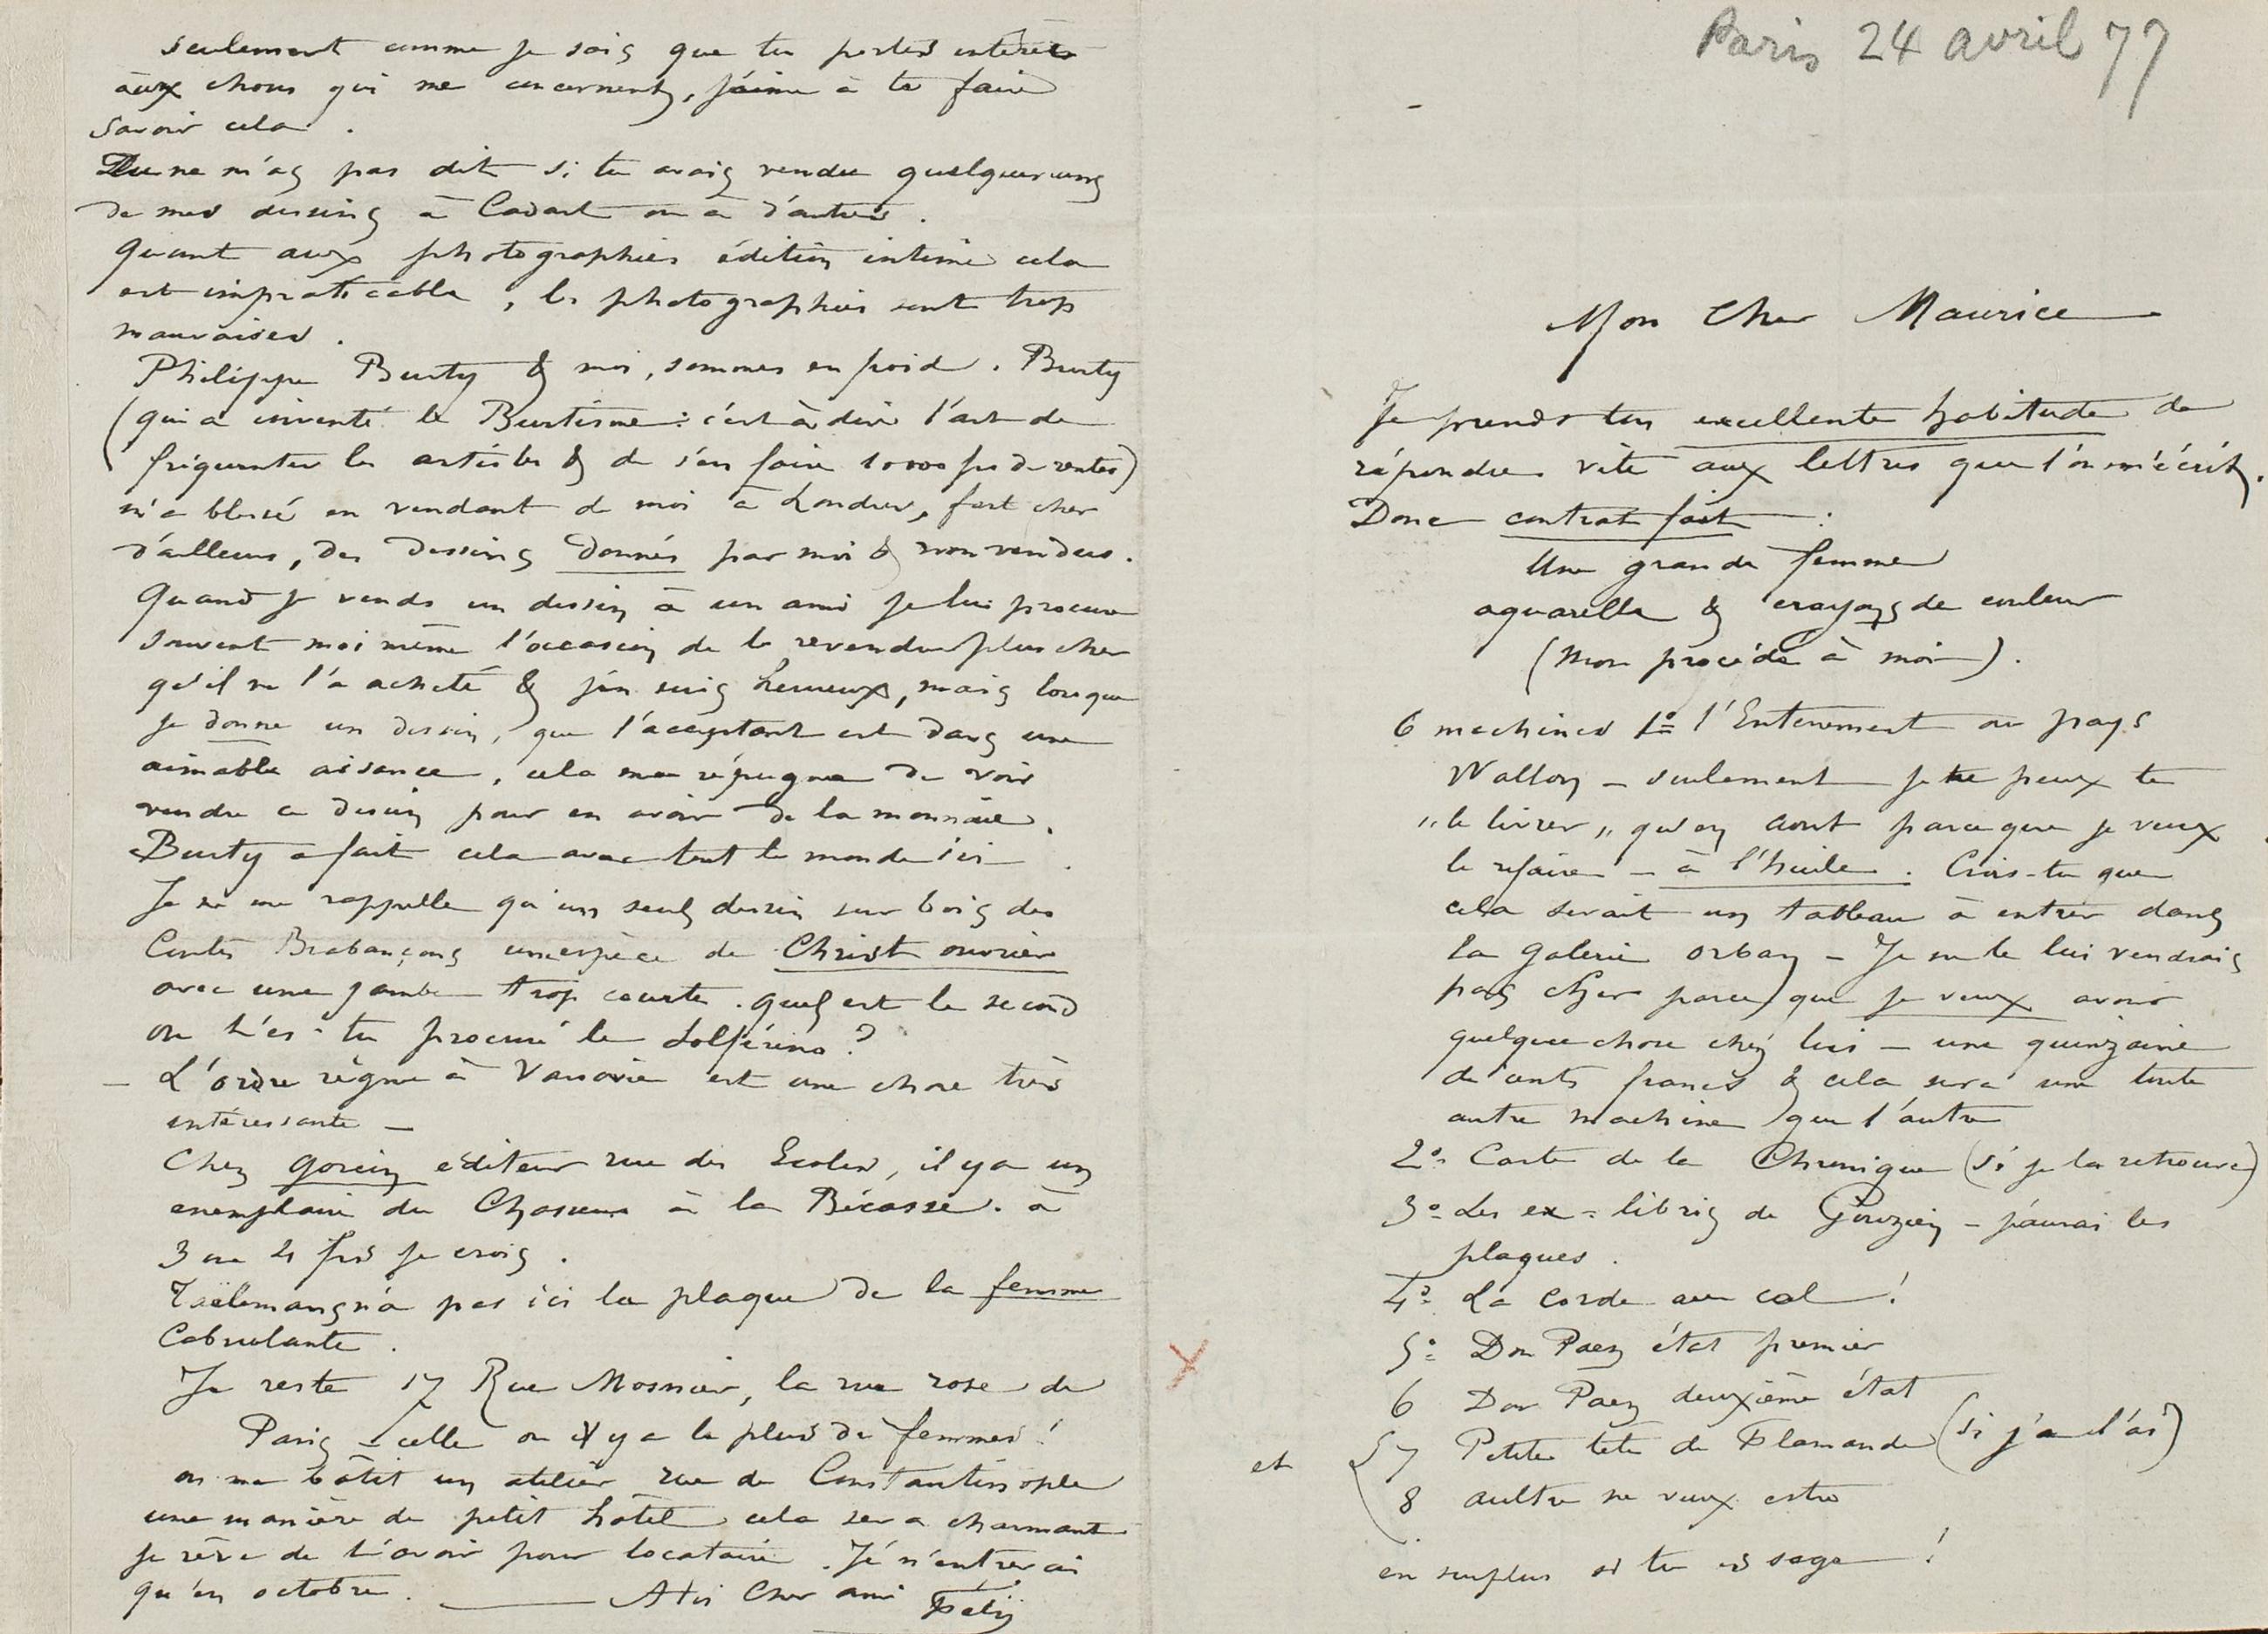 seulement comme je sais que tu portes intérêt
aux choses qui me concernent, j'aime à te faire
savoir cela.
Tu ne m'as pas dit si tu avais vendu quelques uns
de mes dessins à Cadart ou à d'autres.
Quant aux photographies édition intime cela
est impraticable, les photographies sont trop
mauvaises.
Philippe Burty & moi, sommes en froid. Burty
(qui a inventé le Burtisme : c'est à dire l'art de
fréquenter les artistes & de s'en faire 10000 frs de rentes)
m'a blessé en vendant de moi à Londres, fort cher
d'ailleurs, des dessins donnés par moi & non vendus.
Quand je vends un dessin à un ami je lui procure
souvent moi même l'occasion de le revendre plus cher
qu'il ne l'a acheté & j'en suis heureux, mais lorsque
je donne un dessin, que l'acceptant est dans une
aimable aisance, cela me répugne de voir
vendre ce dessin pour en avoir de la monnaie.
Burty a fait cela avec tout le monde ici.
Je ne me rappelle qu'un seul dessin sur bois des
Contes Brabançons une espèce de Christ ouvrier
avec une jambe trop courte. quel est le second
où t'es-tu procuré le Solférino ?
– L'ordre règne à Varsovie est une chose très
intéressante –
Chez Gouin éditeur rue des Ecoles, il y a un
exemplaire du Chasseur à la Bécasse. à
3 ou 4 frs je crois.
Taëlemans n'a pas ici la plaque de la femme
Cabrulante.
Je reste 17 Rue Mosnier, la rue rose de
Paris – celle où il y a le plus de femmes !
on me bâtit un atelier rue de Constantinople
une manière de petit hôtel cela sera charmant
je rêve de t'avoir pour locataire. Je n'entrerai
qu'en octobre. — A toi Cher ami Fély
Paris 24 avril 77
Mon Cher Maurice
Je prends ton excellente habitude de
répondre vite aux lettres que l'on m'écrit.
Donc contrat fait :
Une grande femme
aquarelle & crayons de couleur
(Mon procédé à moi).
6 machines 1º l'Enterrement au pays
Wallon – seulement je ne peux te
„le livrer„ qu'en aout parce que je veux
le refaire – à l'huile. Crois-tu que
cela serait un tableau à entrer dans
la galerie Orban – Je ne le lui vendrais
pas cher parce que je veux avoir
quelque chose chez lui – une quinzaine
de cents francs & cela sera une toute
autre machine que l'autre
2º Carte de la Chronique (si je la retrouve)
3º Les ex-libris de Gouzien – j'aurai les
plaques.
4º La corde au col !
5º Don Paez état premier
6 Don Paez deuxième état
et 7 Petite tete de Flamande (si je l'ai)
8 aultre ne veux estre
en surplus si tu es sage !